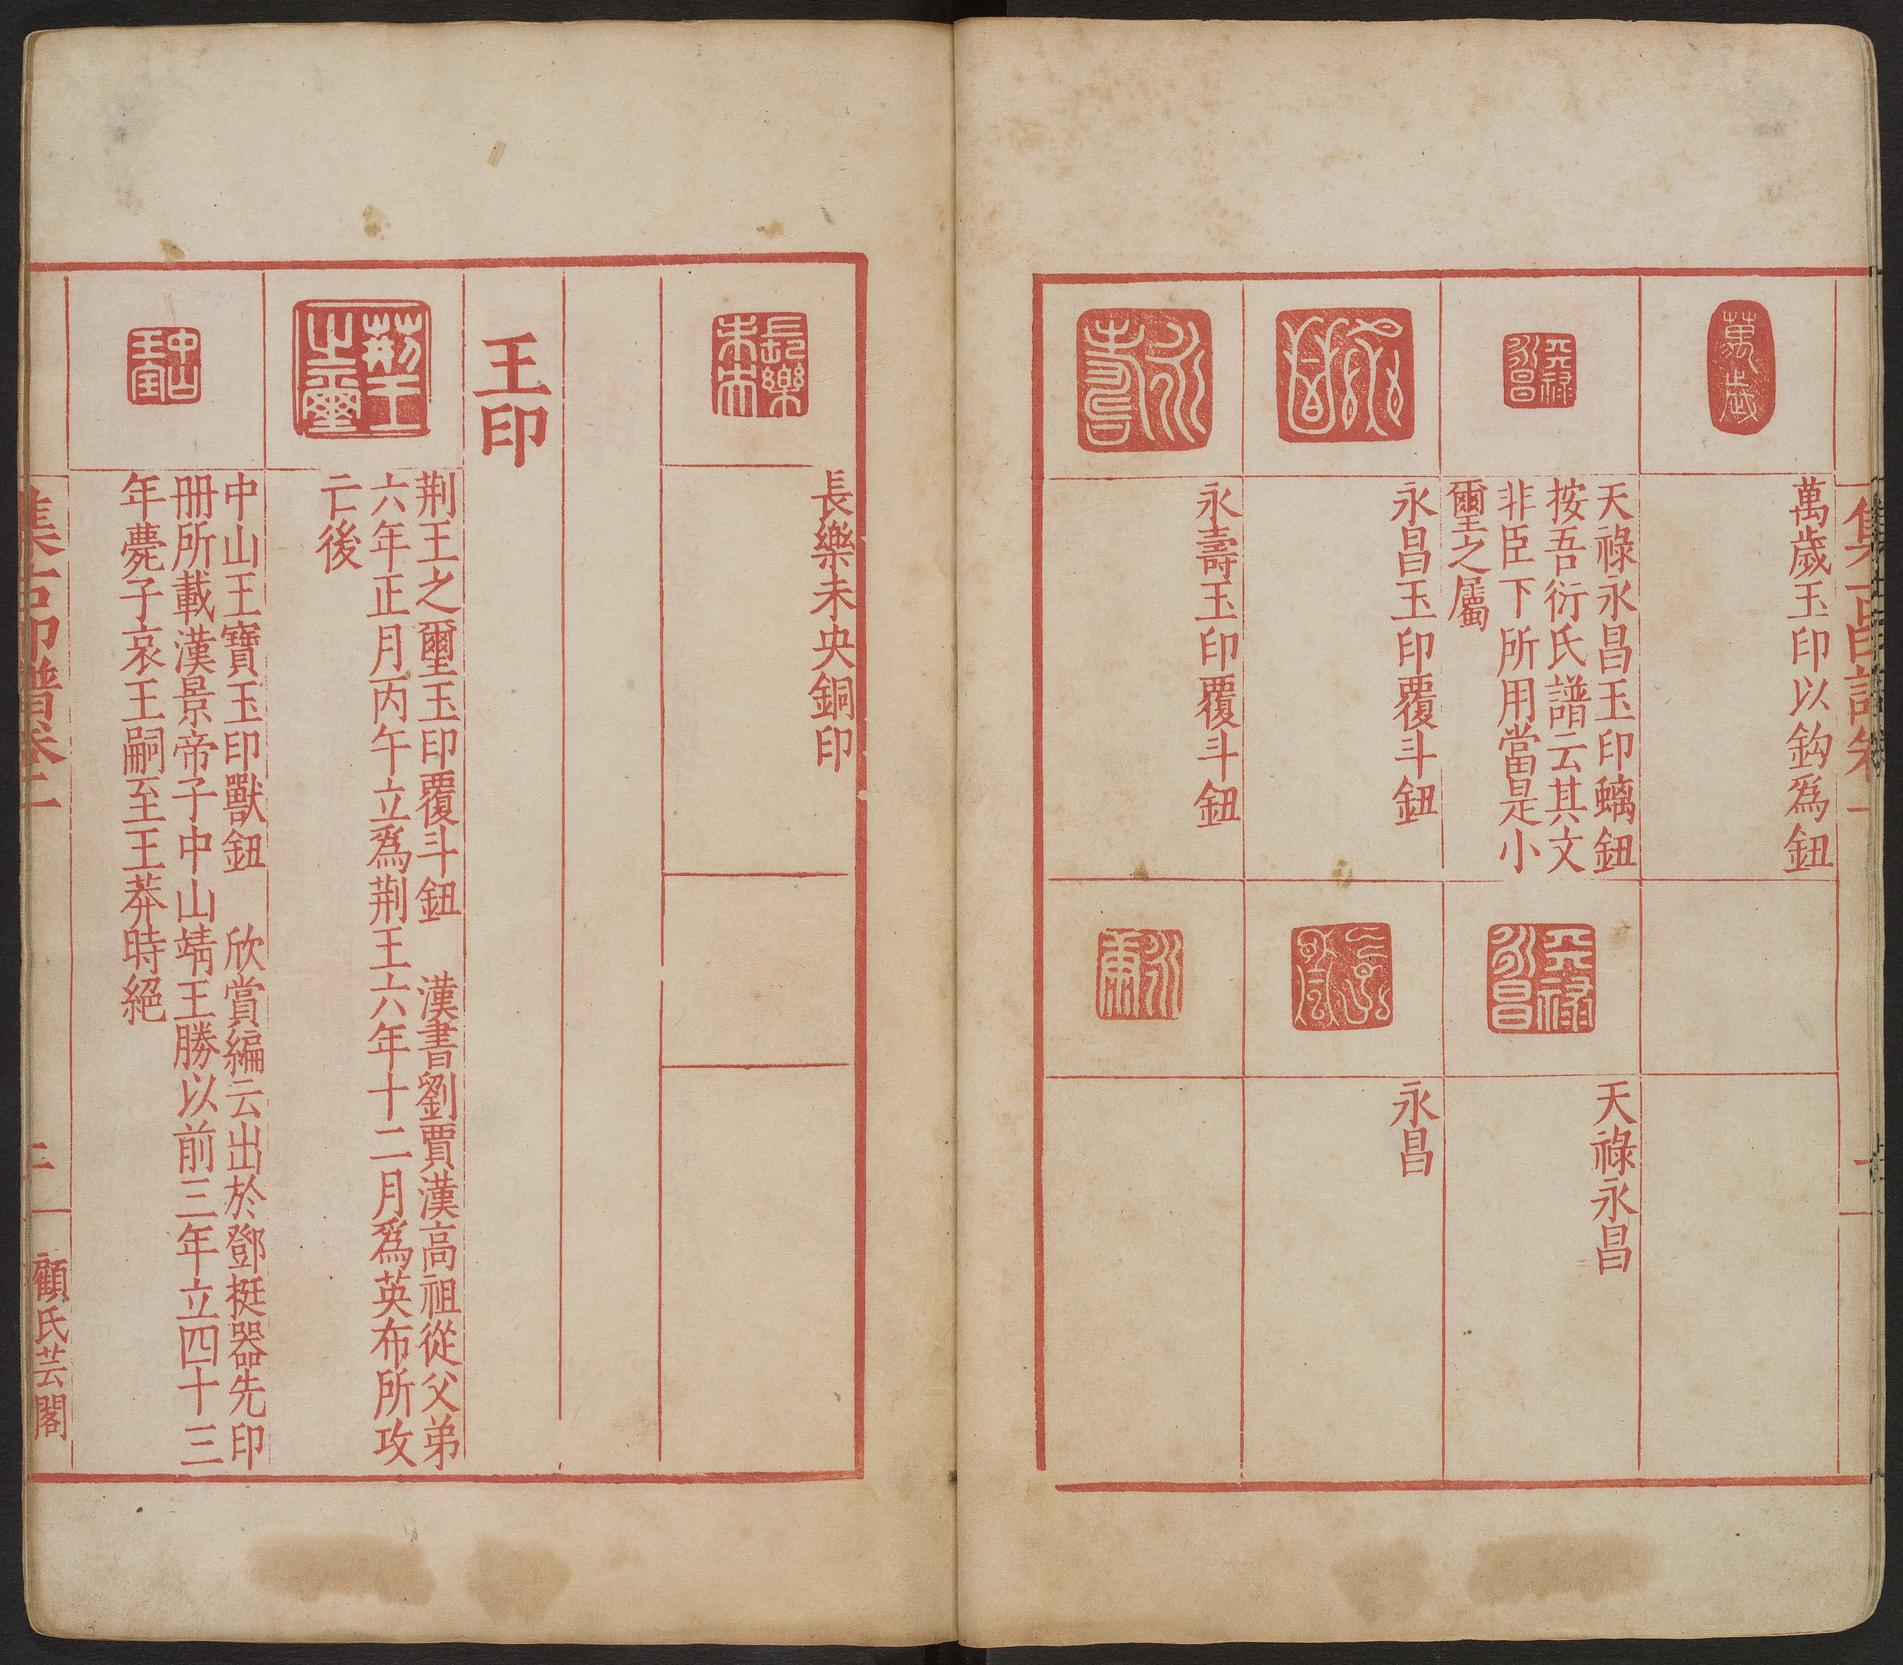 集古印譜卷一
萬歲
萬歲玉印以鈎爲鈕
天祿永昌
天祿永昌玉印螭鈕
按吾衍氏譜云其文
非臣下所用當是小
璽之屬
天祿永昌
天祿永昌
永昌
永昌玉印覆斗鈕
永昌
永壽
永壽玉印覆斗鈕
永康
長樂未央
長樂未央銅印
王印
荆王之璽
荆王之璽玉印覆斗鈕　漢書劉賈漢高祖從父弟
六年正月丙午立爲荆王六年十二月爲英布所攻
亡後
中山王宝
中山王寶玉印獸鈕　欣賞編云出於鄧挺器先印
冊所載漢景帝子中山靖王勝以前三年立四十三
年薨子哀王嗣至王莽時絕
集古印譜卷一
顧氏芸閣